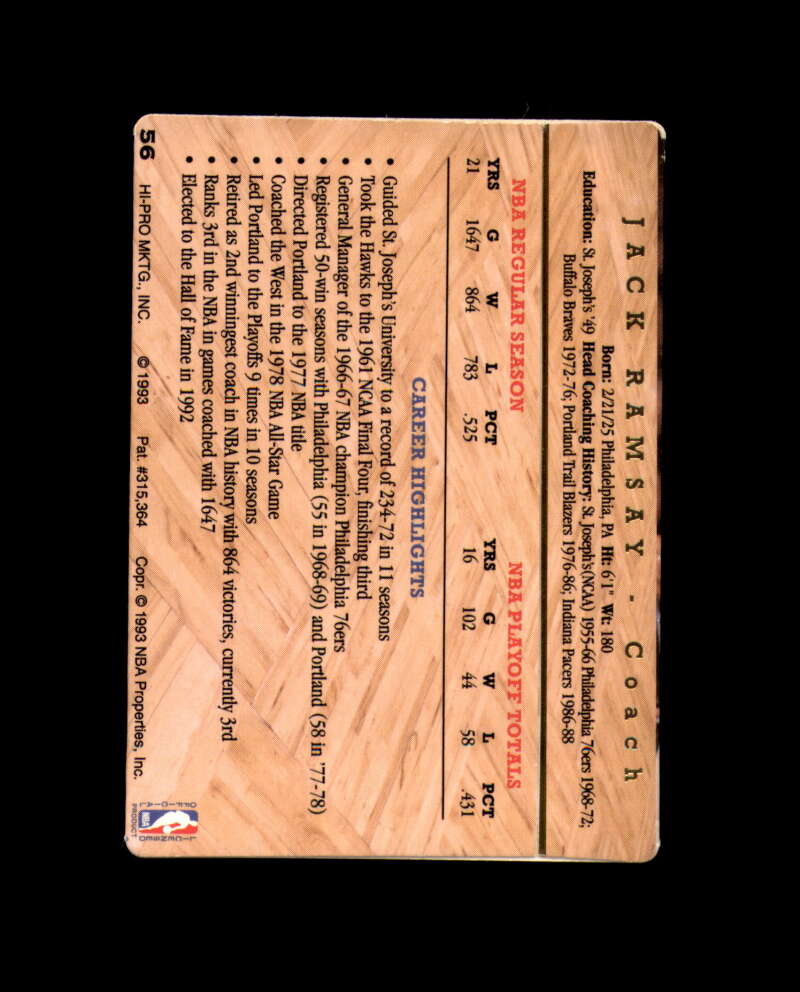 JACK RAMSAY - Coach
Born: 2/21/25 Philadelphia, PA Ht: 6'1" Wt: 180
Education: St. Joseph's '49 Head Coaching History: St. Joseph's(NCAA) 1955-66 Philadelphia 76ers 1968-72;
Buffalo Braves 1972-76; Portland Trail Blazers 1976-86; Indiana Pacers 1986-88
NBA REGULAR SEASON NBA PLAYOFF TOTALS
YRS G W L PCT YRS G W L PCT
21 1647 864 783 .525 16 102 44 58 .431
CAREER HIGHLIGHTS
• Guided St. Joseph's University to a record of 234-72 in 11 seasons
• Took the Hawks to the 1961 NCAA Final Four, finishing third
• General Manager of the 1966-67 NBA champion Philadelphia 76ers
• Registered 50-win seasons with Philadelphia (55 in 1968-69) and Portland (58 in '77-78)
• Directed Portland to the 1977 NBA title
• Coached the West in the 1978 NBA All-Star Game
• Led Portland to the Playoffs 9 times in 10 seasons
• Retired as 2nd winningest coach in NBA history with 864 victories, currently 3rd
• Ranks 3rd in the NBA in games coached with 1647
• Elected to the Hall of Fame in 1992
56 HI-PRO MKTG., INC. © 1993 Pat. #315,364 Copr. © 1993 NBA Properties, Inc.
OFFICIAL LICENSED
NBA
PRODUCT